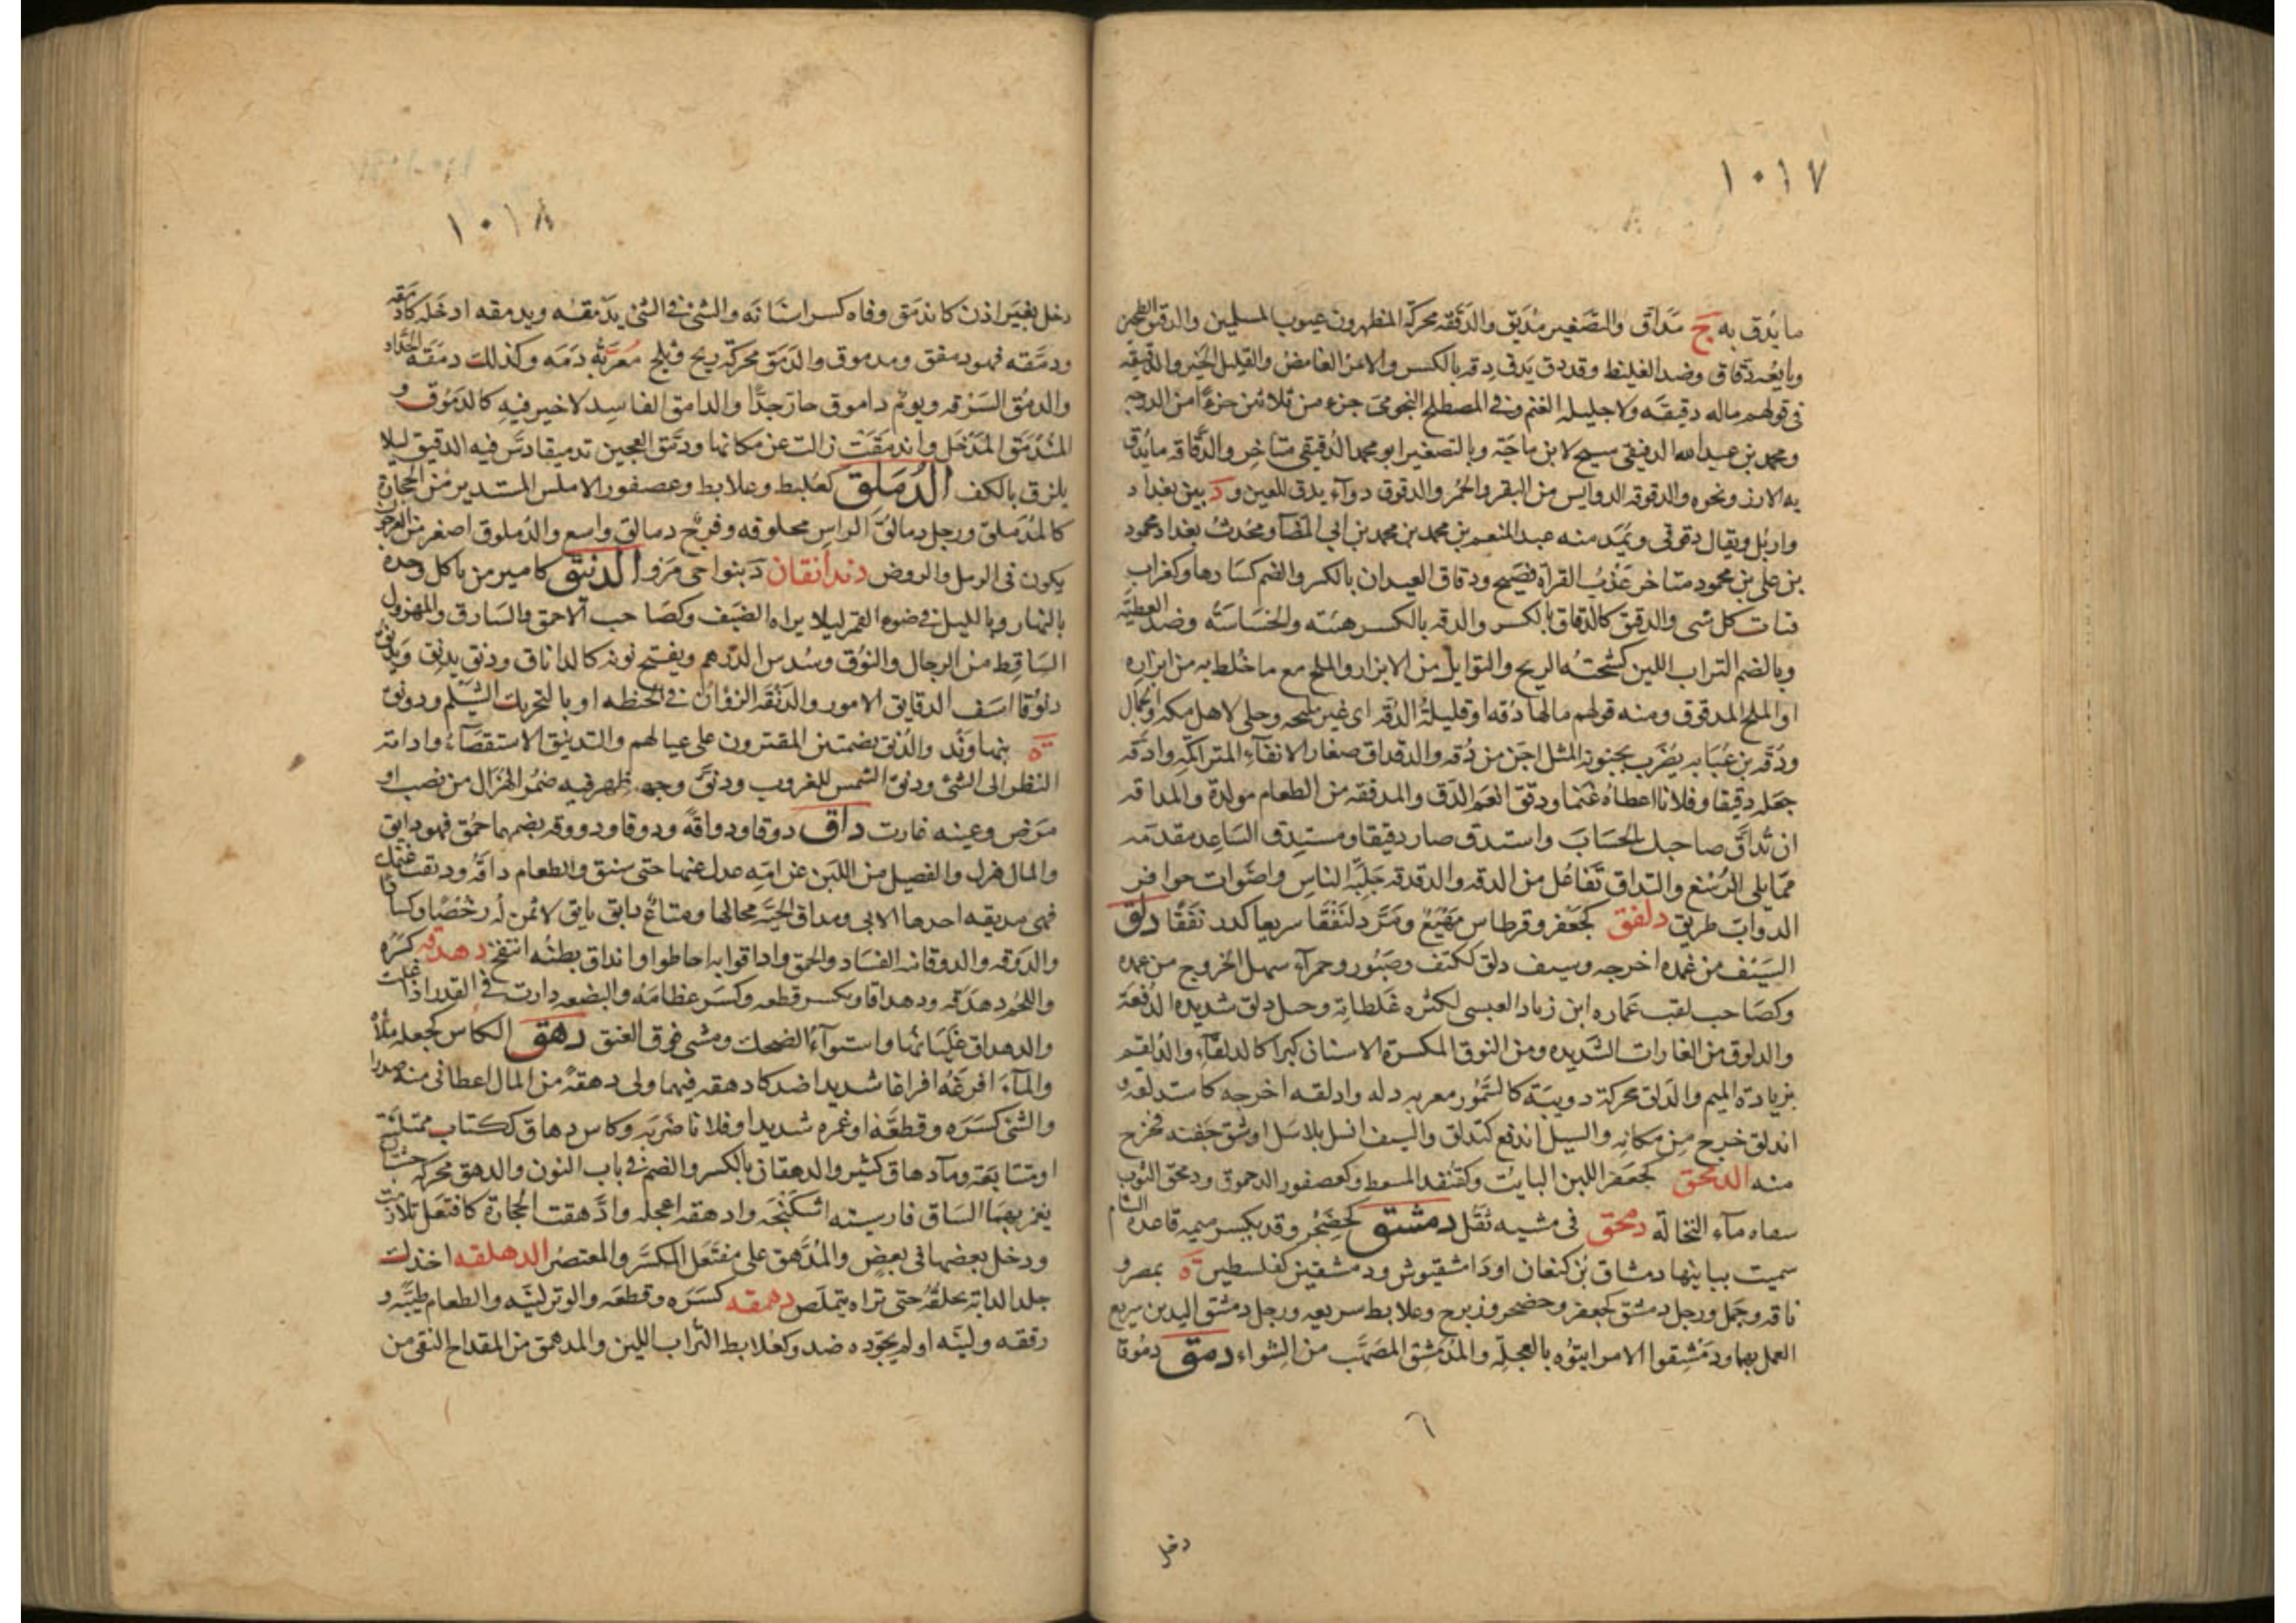 ١٠١٧
ما يُدق به ج مَدَاق والتصغير مُدَيق والدَقَقَه محركة المظهرون عيوب المسلمين والدقيق الطحين
وبايعه دَقاق وضد الغليظ وقد دق يَدق دِقه بالكسر والامر الغامض والقليل الخير والدقيقه
فى قولهم ماله دقيقَه ولا جليله الغنم وفى المصطلح النجومى جزء من ثلاثين جزءًا من الدرجه
ومحمد بن عبدالله الدقيقى شيخ لابن ماجَة وبالتصغير ابو محمد الدُقيقى متأخر والدُقاقه ما يُدَق
به الارز ونحوه والدقوقه الدوايس من البقر والحُمر والدقوق دواء يدق للعين و د بين بغداد
واربُل ويقال دقوقى ويُمَد منه عبد المنعم بن محمد بن محمد بن ابى المضا ومحُدثُ بغداد محمود
بن على بن محمود متاخر عَذْبُ القراة فصَيح ودقاق العيدان بالكسر والضم كسَارها وكغراب
فتات كل شى والدِقق كالدقاق بالكسر والدقه بالكسر هيئته والخسَاسَة وضد العِظَمِ
وبالضم التراب اللين كسَحَتْه الريح والتوابل من الابزار والملح مع ما خُلط به من ابزاره
او الملح المدقوق ومنه قولهم مالها دُقه او قليلة الدُقه اى غير مليحه وحلى لاهل مكه والجمال
ودُقه بن عُبَابه يُضْرَب بجنونه المثل اجَن من دُقه والدقداق صغار الانقاء المتراكمِه وادقه
جعله دقيقا وفلانا اعطاه غنما ودقق انعم الدَق والمدققه من الطعام مولدة والمداقه
ان تُداقّ صاحبك الحسَابَ واستدق صار دقيقا ومستدِق السَاعِد مقدمه
ممّا يلى الرُسْغ والتداق تَفاعُل من الدقه والدقدقه جَلَبَة الناسِ واصَوات حوافر
الدوابّ طريق دلفق كجَعْفر وقرطاس مَهْيَعْ ومَرّ دِلنَفَقًا سريعا كدرنفَقًا دلق
السَيْف من غمده اخرجه وسيف دلق ككتف وصَبُور وحمراء سهل الخروج من غمده
وكصَاحب لقب عَماره ابن زياد العبسى لكثره غلطاته وخيل دلق شديده الدُفعَة
والدلوق من الغارات الشديده ومن النوق المكسرة الاسنان كبرا كالدلقاء والدلقم
بزيادة الميم والدَلق محركة دويبَة كالسَمُّور معربه دله وادلقه اخرجه كاستدلقه و
اندلق خرج من مكانه والسيل اندفع كتدلق والسيف انسل بلا سَل او شق جَفنه فخرج
منه الدمحق كجعَفر اللبن البايت وكقنُفد المسعط وكعصفور الدحموق ودمحق الثوب
سقاه ماء النخالة دمحق فى مشيه ثَقُل دمشق كحِضَجْر وقد بكسر ميمه قاعدة الشام
سميت ببانيها دمشاق بْن كنعان او دَا مشقيوش ودمشقين كفلسطين ة بمصر و
ناقه وجَمل ورجل دمشق كجعفر وحضجر وزبرج وعلابط سريعه ورجل دمشق اليدين سريع
العمل بهما ودَمْشِقوا الامر ايتوُه بالعجلة والمُدَمْشَق المصَهَّب من الشواء دمق دمُوقا
دخل
١٠١٨
دخل بغَير اذن كاندمَق وفاه كسر اسنَانَه والشئ فى الشئ يدمُقه ويدمقه ادخَله كادمَقه
ودمَّقه فهو دمقق ومدموق والدَمَق محركة ريح وثلج مُعرَبُه دَمَه وكذلك دمَقَه الحدّاد
والدمُق السَرْقه ويومٌ داموق حار جدًّا والدامق الفاسِد لا خير فيهِ كالدَمُوق و
المُنْدَمَق المُدْخَل واندمَقَتْ زالت عن مكانها ودمّق العجين تدميقا دسّ فيه الدقيق ليلا
يلزق بالكف الدُمَلِق كعُلبط وعلابط وعصفور الاملس المستدير من الحجارة
كالمُدَملق ورجل دمالقُ الراسِ محلوقه وفرج دمالق واسع والدُملوق اصغر من العرجون
يكون فى الرمل والروض دندانقان د بنواحى مَرْو الدنيق كامير من ياكل وحده
بالنهار وبالليل فى ضوء القمر ليلا يراه الضَيف وكصَاحب الاحمق والسَارق والمهزول
السَاقِط من الرجال والنوُق وسُدس الدرهم ويفتح نونه كالداناق ودنق يدنِق ويدنُق
دنوُقا اسَف الدقايق الامور والدَنْقَه الزوُان فى الحنطه او بالتحريك الشيلم ودونق
ة بنهاوَنْد والدُنق بضمتين المقترون على عيالهم والتدنيق الاستقصَاء وادامة
النظر الى الشئ ودنق الشمس للغروب ودنَّق وجهه ظهر فيه ضمُور الهُزال من نصب او
مَرض وعينه غارت داق دوقا ودواقةً ودوقا ودووقه بضمهما حمُق فهو دايق
والمال هزل والفصيل من اللبَن عن امّه عدل عنها حتى سنق والطعام داقَه ودقت غنمك
فهى مديقه احدها الابى ومداق الحيَّه مجالها ومتاعٌ دايق بايق لا ثمن له رخْصًا وكسادًا
والدَوقه والدوقانه الفسَاد والحمق واداقوا به احاطوا وانداق بطنُه انتفخ دهدقه كسَره
واللحم دهدَقه ودهداقا ويكسر قطعه وكسَر عظامَه والبضعه دارت فى القدر اذا غلت
والدهداق غليَانُها واستواء الضحك ومشى فوق العَنق دهق الكاس كجعله ملأه
والماء افرَغَه افراغا شديدا ضد كادهقه فيهما ولى دهقةً من المال اعطانى منه صدرا
والشَى كسَرَه وقطعَّه او غمزه شديدا وفلانا ضَرَبَه وكاس دهاق ككتاب ممتلئة
او متتابَعة وماء دهاق كثير والدهقان بالكسر والضم فى باب النون والدهق محركة خشبتان
يغمز بهمَا السَاق فارسيته اشكَنْجَه وادهقه اعجله وادَّهقت الحجارة كافتعَل تلازمت
ودخل بعضها فى بعض والمُدَّهَق على مفتَعَل المكسَّر والمعتصَر الدهلقه اخذك
جلد الدابة بحلقُه حتى تراه يتملَص دهمقه كسَرَه وقطعَه والوتر ليّنه والطعام طيَّبه و
رققه وليّنه او لم يجوّده ضد وكعُلابط التُراب اللين والمدهمق من المقداح النقى من